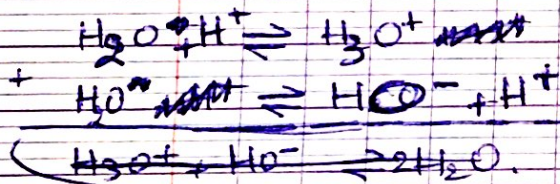 H2O + H+ ⇌ H3O+
+ H2O ⇌ HO- + H+
H3O+ + HO- ⇌ 2H2O.